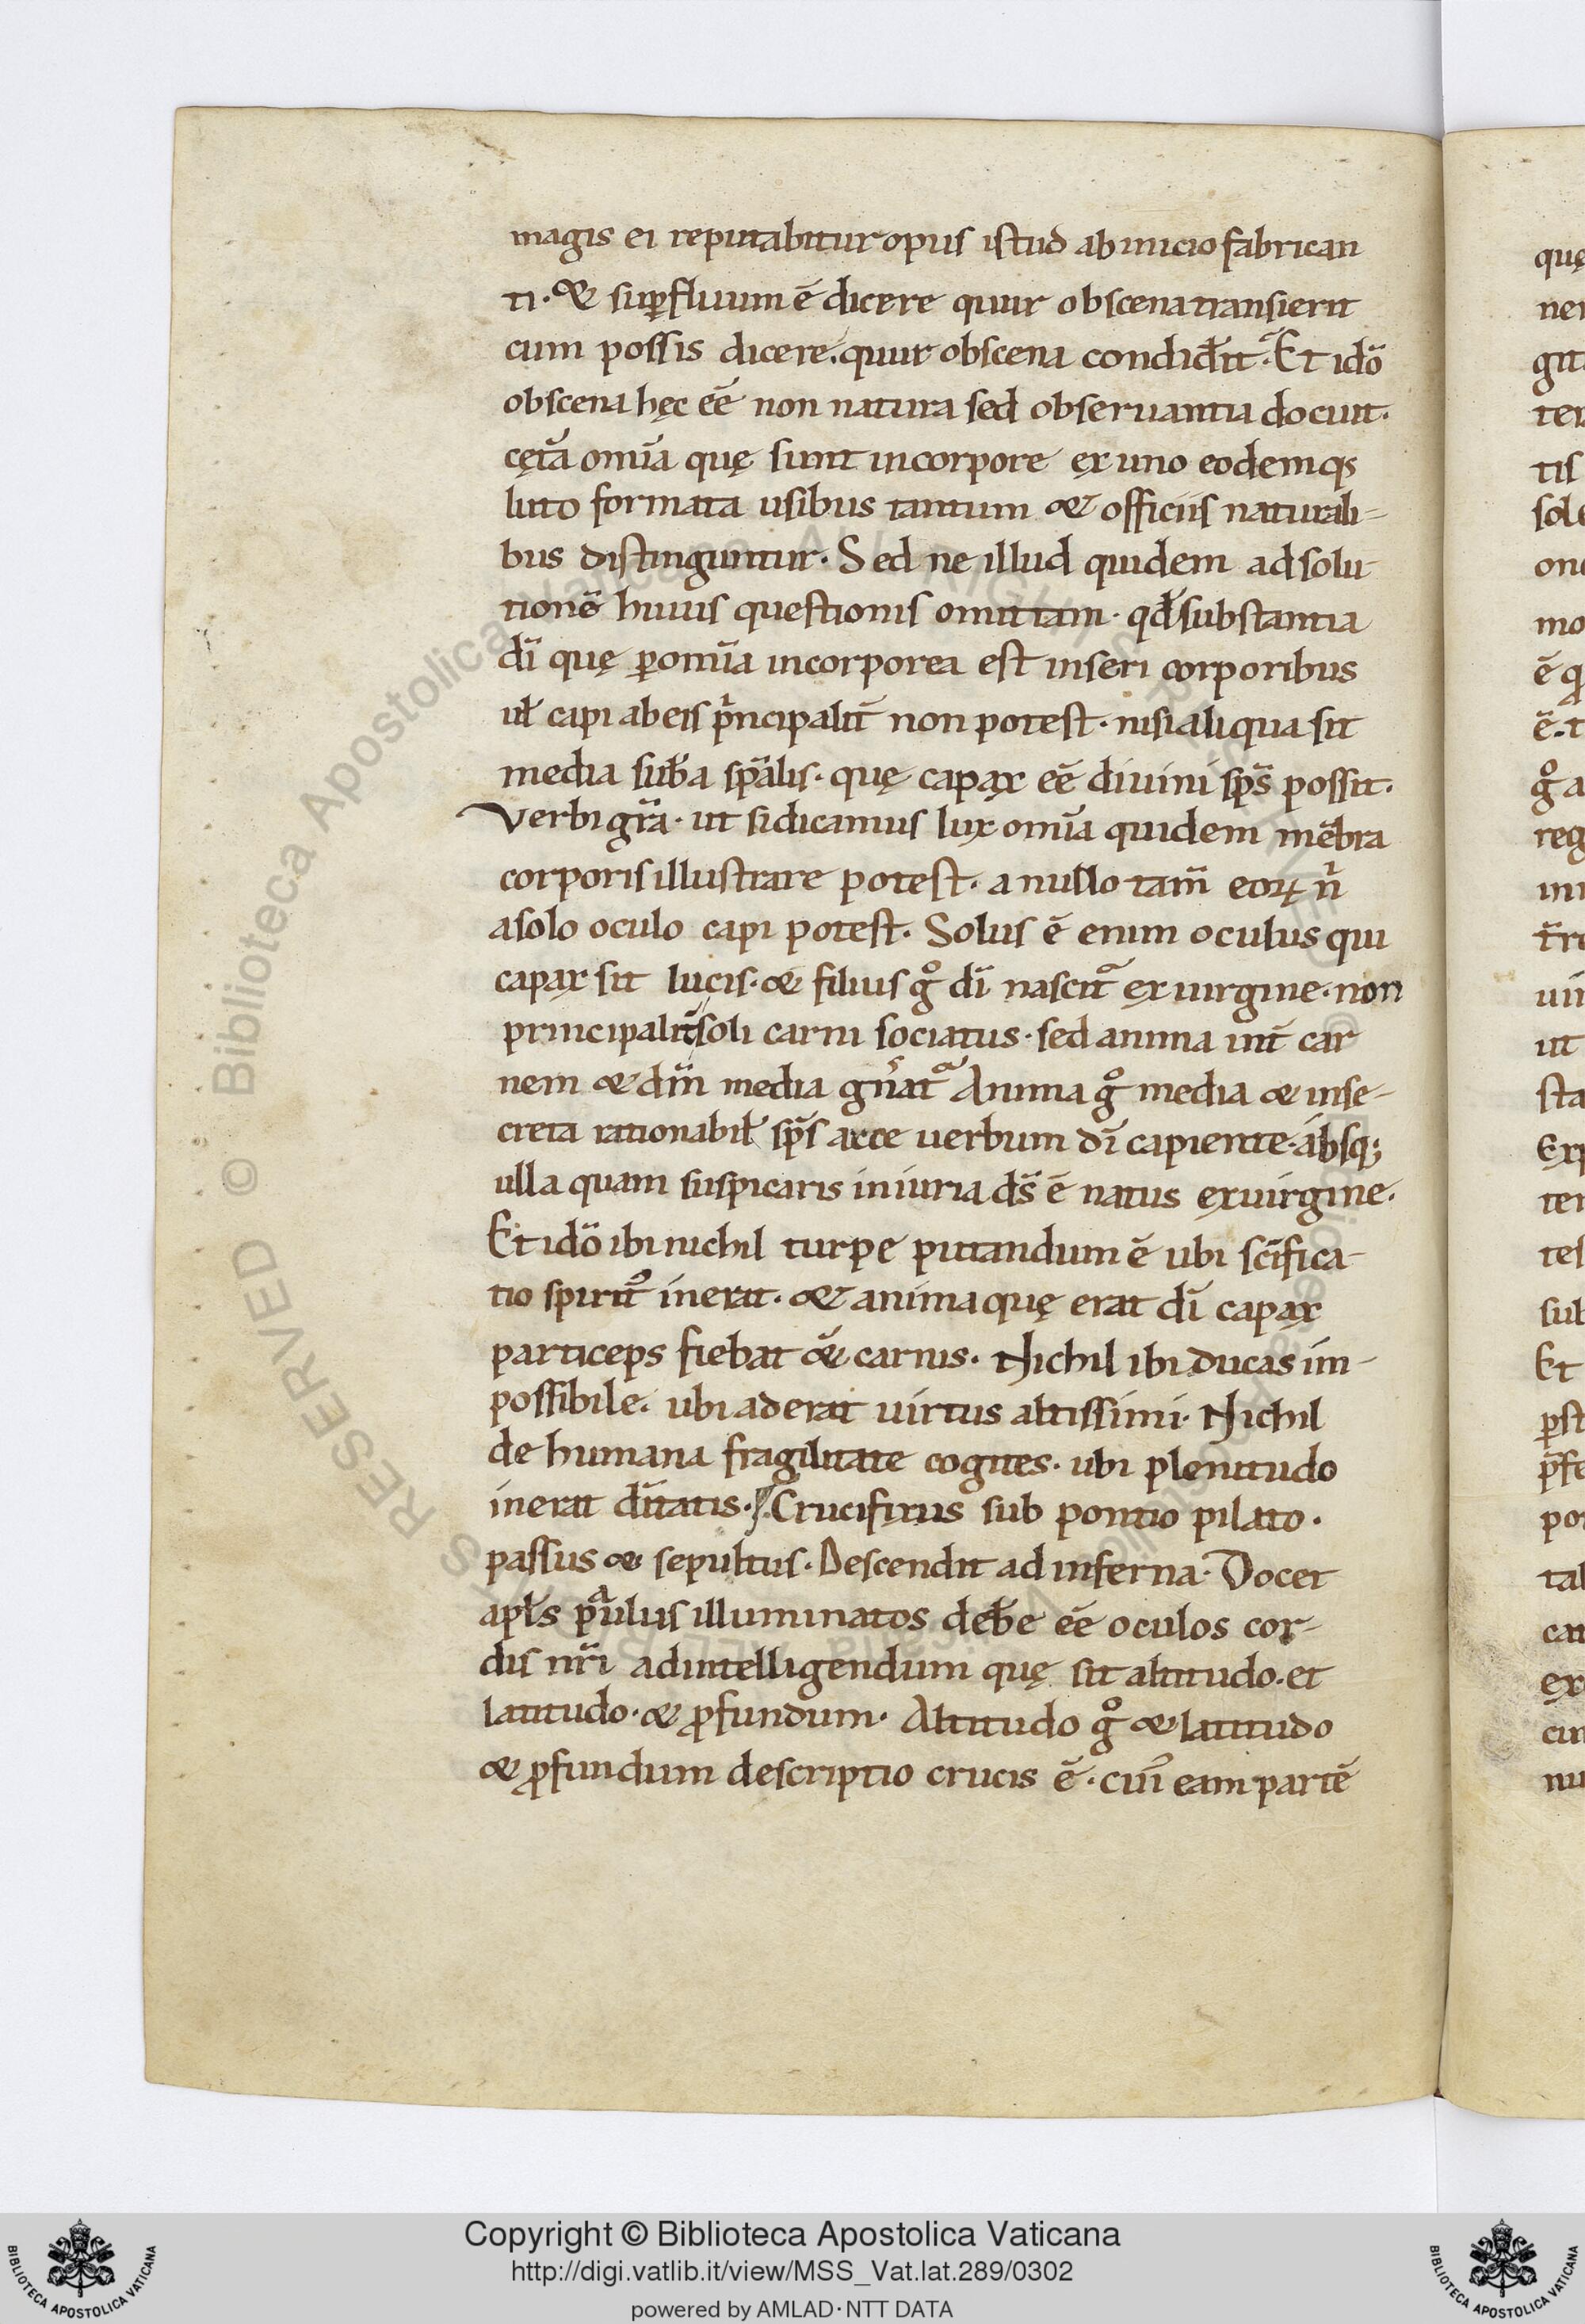 magis ei reputabitur opus istud ab inicio fabrican
ti· & suꝑfluum ē dicere quur obscena transierit
cum possis dicere. quur obscena condiđit. Et idō
obscena hęc eē non natura sed obseruantia docuit.
cętā om̄ia quę sunt in corpore ex uno eodemqꝫ
luto formata usibus tantum & officiis naturali-
bus distinguntur. Sed ne illud quidem ad solu-
tionē huius questionis omittam· qđ substantia
dī quę ꝑ om̄ia incorporea est inseri corporibus
uł capi ab eis pͥncipalit̄ non potest· nisi aliqua sit
media sub̄a sp̄alis· quę capax eē diuini sp̄s possit.
Verbi gr̄a· ut si dicamus lux om̄ia quidem mēbra
corporis illustrare potest· a nullo tam̄ eoꝝ nͥ
a solo oculo capi potest. Solus ē enim oculus qui
capax sit lucis· & filius gͦ dī nascit᷑ ex uirgine· non
principalit̄ soli carni sociatus· sed anima int̄ car
nem & dm̄ media gn̄at᷑ Anima gͦ media & in se-
creta rationabił sp̄s arce uerbum dī capiente· absqꝫ
ulla quam suspicaris iniuria ds̄ ē natus ex uirgine.
Et idō ibi nichil turpe putandum ē ubi sc̄ifica-
tio spirit᷒ inerat. & anima quę erat dī capax
particeps fiebat &̄ carnis. Nichil ibi ducas im-
possibile. ubi aderat uirtus altissimi. Nichil
de humana fragilitate cogites· ubi plenitudo
inerat d̄itatis. Crucifixus sub pontio pilato.
passus & sepultus. Descendit ad inferna. Docet
apłs pͣulus illuminatos deb̄e eē oculos cor-
dis nr̄i ad intelligendum quę sit altitudo· et
latitudo· & ꝓfundum. Altitudo gͦ & latitudo
& ꝓfundum descriptio crucis ē. cui᷒ eam partē
Copyright © Biblioteca Apostolica Vaticana
http://digi.vatlib.it/view/MSS_Vat.lat.289/0302
powered by AMLAD·NTT DATA